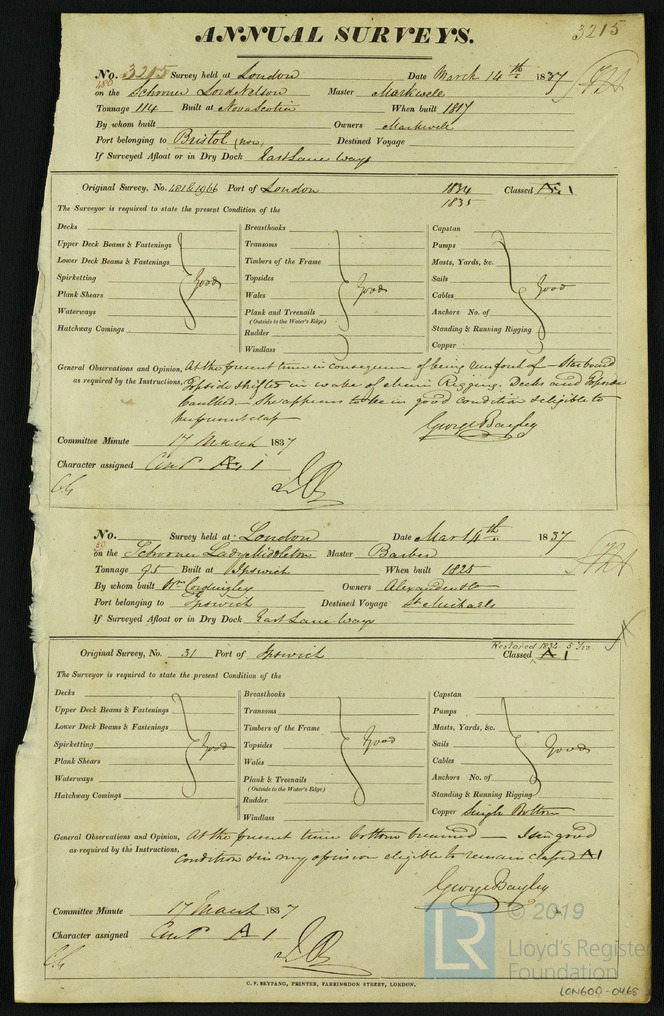 ANNUAL SURVEYS.
3215
No. 3215 Survey held at London Date March 14th 1837
on the Schooner Lord Nelson Master Markwell
Tonnage 114 Built at Nova Scotia When built 1817
By whom built Owners Markwell
Port belonging to Bristol (now) Destined Voyage
If Surveyed Afloat or in Dry Dock East Lane Ways
Original Survey, No. 481 & 1966 Port of London 1834 Classed Æ 1
1835
The Surveyor is required to state the present Condition of the
Decks Breasthooks Capstan
Upper Deck Beams & Fastenings Transoms Pumps
Lower Deck Beams & Fastenings Timbers of the Frame Masts, Yards, &c.
Spirketting Good Topsides Good Sails Good
Plank Shears Wales Cables
Waterways Plank and Treenails Anchors No. of
(Outside to the Water's Edge)
Hatchway Comings Rudder Standing & Running Rigging
Windlass Copper
General Observations and Opinion, At the present time in consequence of being run foul of Starboard
as required by the Instructions, Topside shifted in wake of chain Rigging. Decks and Topside
Caulked She appears to be in good condition & eligible to
her present class
George Bayley
Committee Minute 17 March 1837
Character assigned Cont Æ 1
No. Survey held at London Date Mar 14th 1837
50
on the Schooner Lady Middleton Master Barber
Tonnage 95 Built at Ipswich When built 1825
By whom built Wm Cordingley Owners Alexander & Co
Port belonging to Ipswich Destined Voyage St Michaels
If Surveyed Afloat or in Dry Dock East Lane Ways
Restored 1834. 5 Yrs.
Original Survey, No. 31 Port of Ipswich Classed A 1
The Surveyor is required to state the present Condition of the
Decks Breasthooks Capstan
Upper Deck Beams & Fastenings Transoms Pumps
Lower Deck Beams & Fastenings Timbers of the Frame Masts, Yards, &c.
Spirketting Good Topsides Good Sails Good
Plank Shears Wales Cables
Waterways Plank & Treenails Anchors No. of
(Outside to the Water's Edge)
Hatchway Comings Rudder Standing & Running Rigging
Windlass Copper Single Bottom
General Observations and Opinion, At the present time bottom breamed — Is in good
as required by the Instructions, condition & in my opinion eligible to remain classed A1
George Bayley
Committee Minute 17 March 1837
Character assigned Cont A 1
C. F. SEYFANG, PRINTER, FARRINGDON STREET, LONDON.
LR © 2019
Lloyd's Register
Foundation
LON600-0468